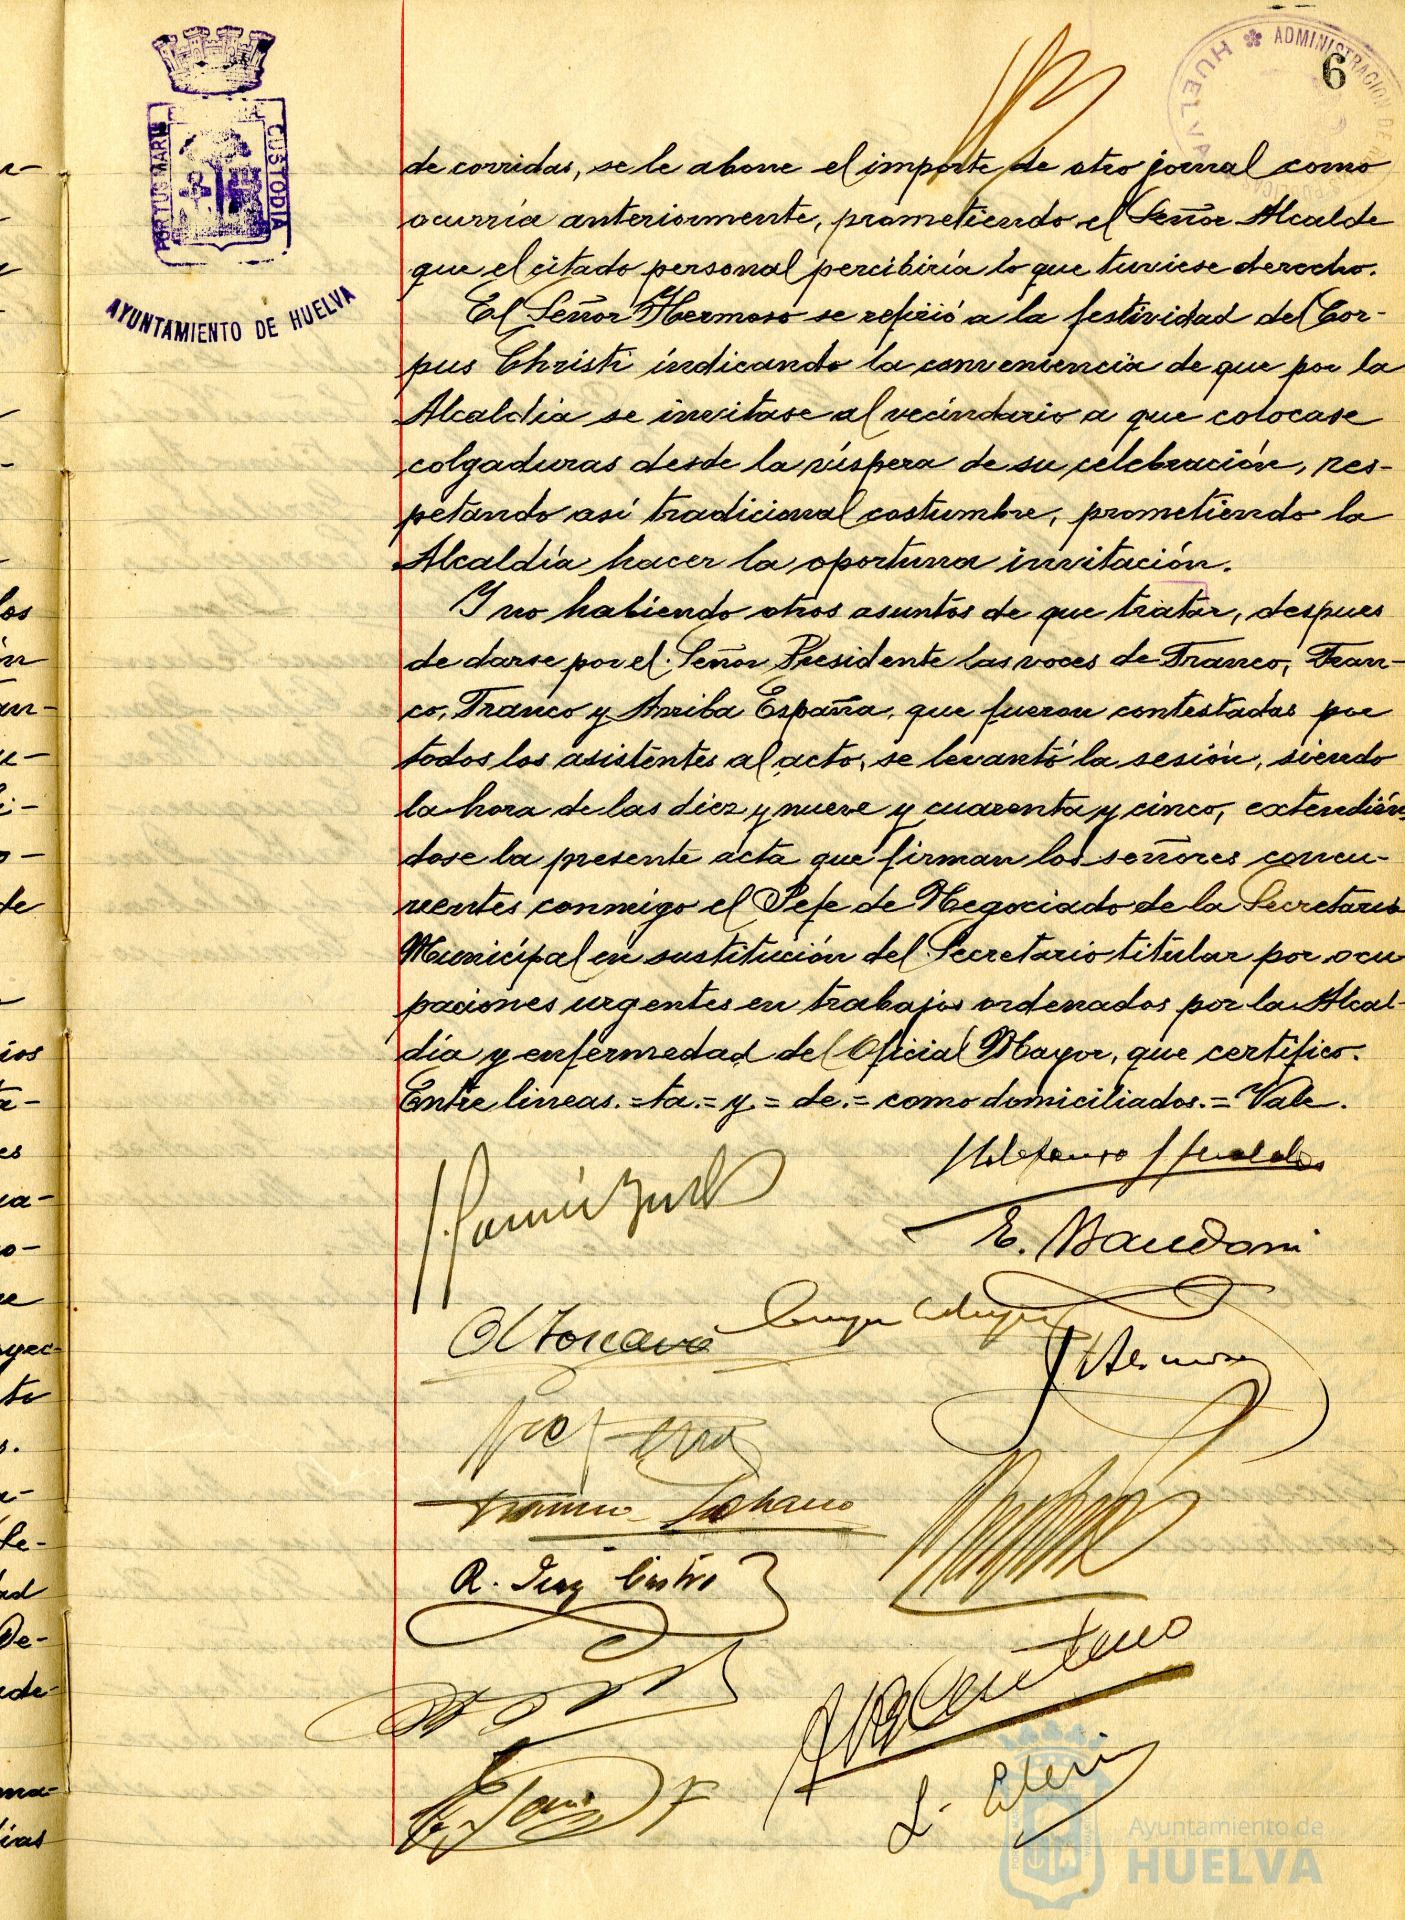 6
HUELVA * ADMINISTRACION DE
PORTUS MARIS CUSTODIA
AYUNTAMIENTO DE HUELVA
de corridas, se le abone el importe de otro jornal como
ocurría anteriormente, prometiendo el Señor Alcalde
que el citado personal percibiría lo que tuviese derecho.
El Señor Hermoso se refirió a la festividad del Cor-
pus Christi indicando la conveniencia de que por la
Alcaldía se invitase al vecindario a que colocase
colgaduras desde la víspera de su celebración, res-
petando así tradicional costumbre, prometiendo la
Alcaldía hacer la oportuna invitación.
Y no habiendo otros asuntos de que tratar, despues
de darse por el Señor Presidente las voces de Franco, Fran-
co, Franco y Arriba España, que fueron contestadas por
todos los asistentes al acto, se levantó la sesión, siendo
la hora de las diez y nueve y cuarenta y cinco, extendién-
dose la presente acta que firman los señores concu-
rrentes conmigo el Jefe de Negociado de la Secretaría
Municipal en sustitución del Secretario titular por ocu
paciones urgentes en trabajos ordenados por la Alcal-
día y enfermedad del Oficial Mayor, que certifico.
Entre lineas.=ta.=y.=de.=como domiciliados.=Vale.
E.
R. Castro
L.
Ayuntamiento de
HUELVA